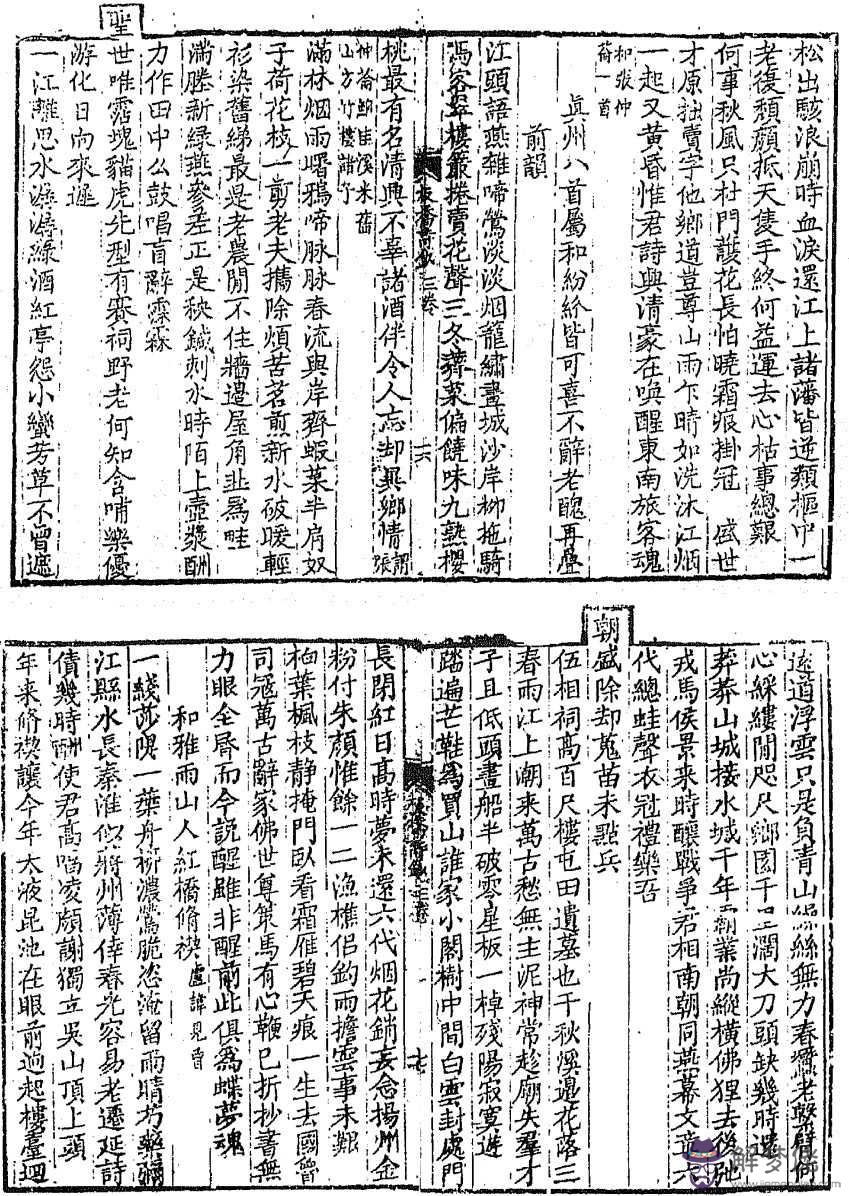 松出駭浪崩時血淚還江上諸藩皆逆類樞中一
老復頹顏抵天隻手終何益運去心枯事總艱
何事秋風只杜門護花長怕曉霜痕掛冠 盛世
才原拙賣字他鄉道豈尊山雨乍晴如洗沐江烟
一起又黃昏惟君詩興清豪在喚醒東南旅客魂
和張仲
菕一首
眞州八首屬和紛紛皆可喜不辭老醜再疊
前韻
江頭語燕雜啼鶯淡淡烟籠繡畫城沙岸柳拖騎
馮客翠樓簾捲賣花聲三冬薺菜偏饒味九熟櫻
板橋詩鈔 三卷
十六
桃最有名清興不辜諸酒伴令人忘却異鄉情謂張
仲菕鮑匡溪米舊
山方竹樓諸子
滿林烟雨曙鴉啼脉脉春流與岸齊蝦菜半肩奴
子荷花枝一剪老夫攜除煩苦茗煎新水破暖輕
衫染舊綈最是老農閒不住牆邊屋角韭爲畦
滿塍新綠燕參差正是秧鍼刺水時陌上壺漿酬
力作田中么鼓唱盲辭霡霂
聖
世唯露塊貓虎先型有賽祠野老何知含哺樂優
游化日向來遲
一江離思水漭漭綠酒紅亭怨小蠻芳草不曾遮
遠道浮雲只是負青山絲絲無力春蠶老繫臂何
心綵縷閒咫尺鄉園千里濶大刀頭缺幾時還
莽莽山城接水城千年霸業尚縱橫佛狸去後弛
戎馬侯景来時釀戰爭君相南朝同燕幕文章六
代總蛙聲衣冠禮樂吾
朝
盛除却蒐苗未點兵
伍相祠高百尺樓屯田遺墓也千秋溪邊花落三
春雨江上潮来萬古愁無主泥神常趁廟失羣才
子且低頭畫船半破零星板一棹殘陽寂寞遊
踏遍芒鞋爲買山誰家小閣樹中間白雲封處門
板橋詩鈔 三卷
十七
長閉紅日高時夢未還六代烟花銷妄念揚州金
粉付朱顏惟餘一二漁樵侶釣雨擔雲事未艱
桕葉楓枝靜掩門臥看霜雁碧天痕一生去國曾
司冦萬古辭家佛世尊策馬有心鞭已折抄書無
力眼全昏而今說醒雖非醒前此俱爲蝶夢魂
和雅雨山人紅橋脩禊 盧諱見曾
一綫莎隄一葉舟柳濃鶯脆恣淹留雨晴芍藥彌
江縣水長秦淮似蔣州薄倖春光容易老遷延詩
債幾時酬使君高唱凌顔謝獨立吳山頂上頭
年来脩禊讓今年太液昆池在眼前迥起樓臺迴